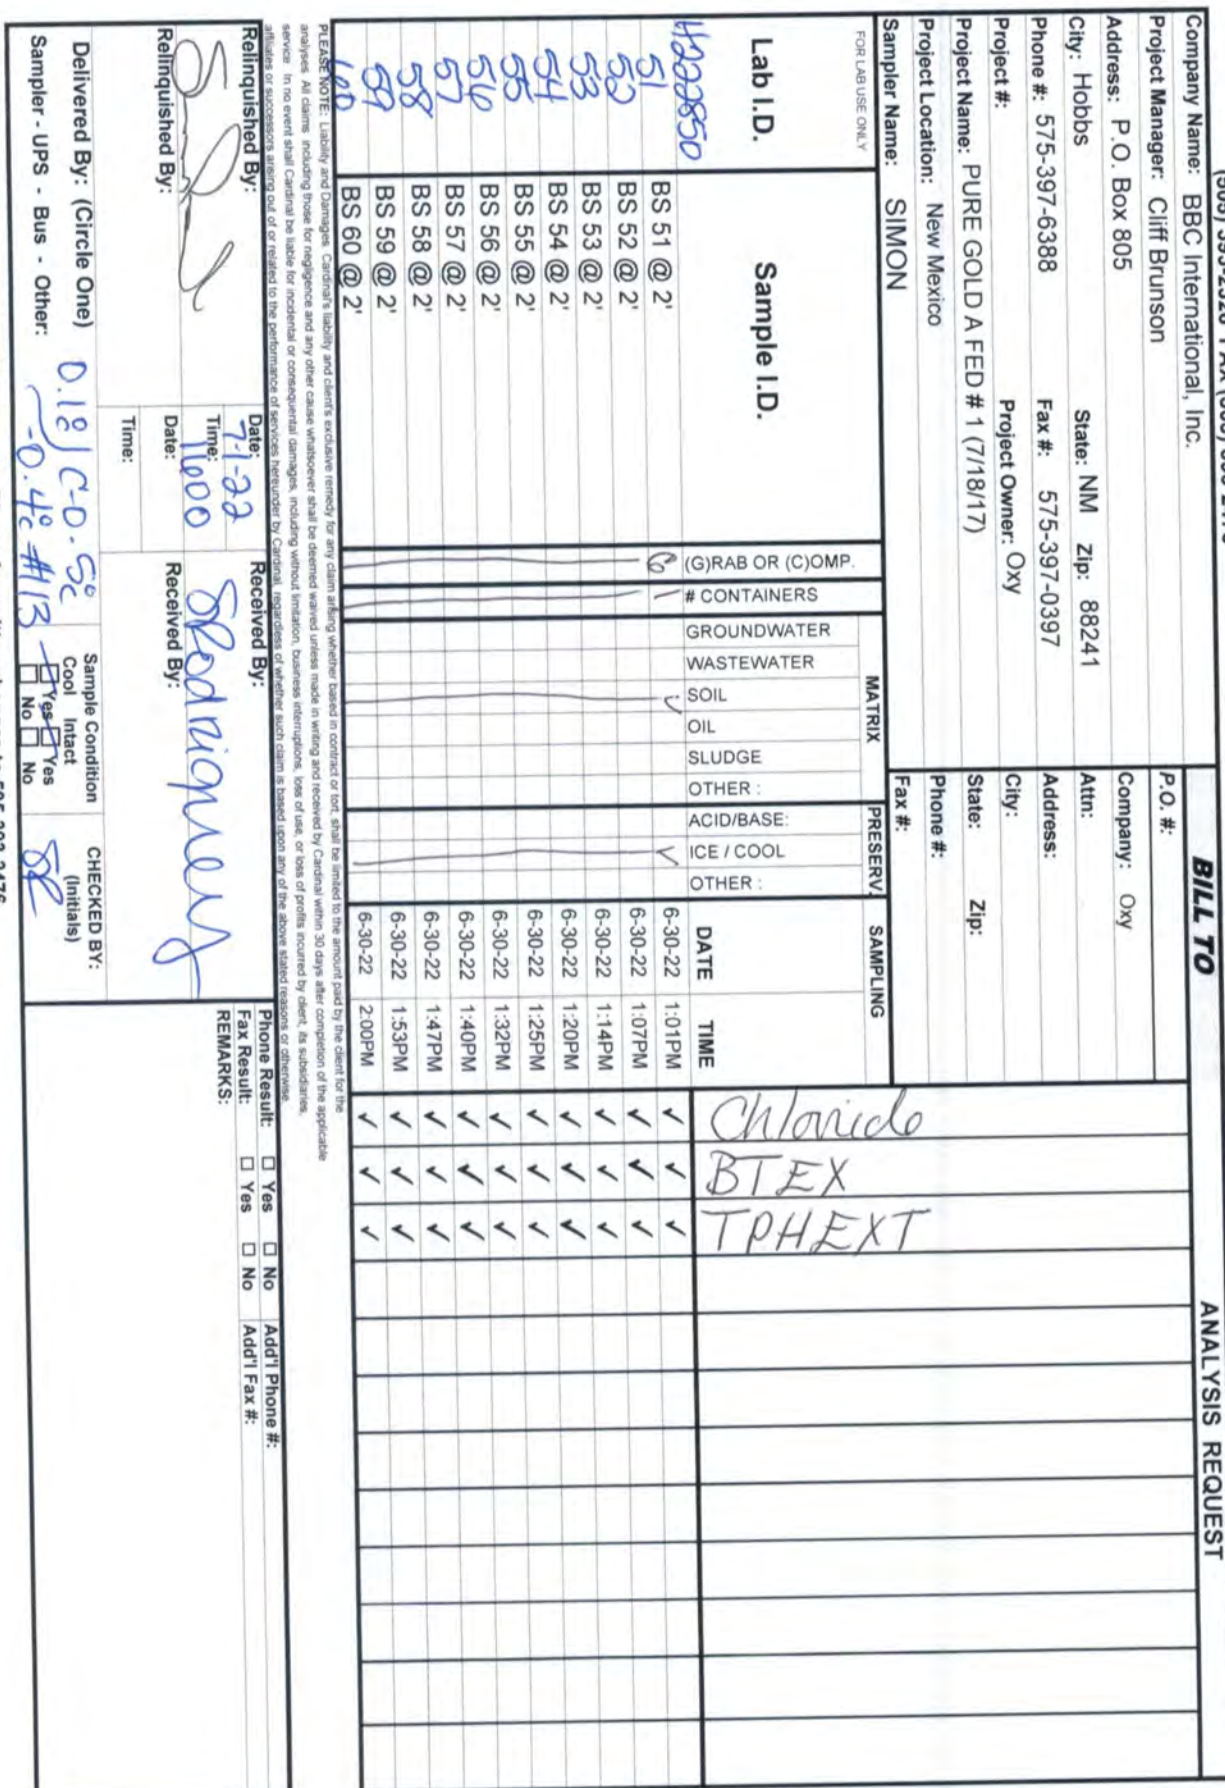 Company Name: BBC International, Inc.
Project Manager: Cliff Brunson
Address: P.O. Box 805
City: Hobbs State: NM Zip: 88241
Phone #: 575-397-6388 Fax #: 575-397-0397
Project #: Project Owner: Oxy
Project Name: PURE GOLD A FED # 1 (7/18/17)
Project Location: New Mexico
Sampler Name: SIMON
BILL TO
P.O. #:
Company: Oxy
Attn:
Address:
City:
State: Zip:
Phone #:
Fax #:
ANALYSIS REQUEST
FOR LAB USE ONLY
Lab I.D.
H222850
Sample I.D.
(G)RAB OR (C)OMP.
# CONTAINERS
MATRIX
GROUNDWATER
WASTEWATER
SOIL
OIL
SLUDGE
OTHER :
PRESERV.
ACID/BASE:
ICE / COOL
OTHER :
SAMPLING
DATE TIME
Chloride
BTEX
TPH EXT
51 BS 51 @ 2' G 1 ✓ ✓ 6-30-22 1:01PM ✓ ✓ ✓
52 BS 52 @ 2' 6-30-22 1:07PM ✓ ✓ ✓
53 BS 53 @ 2' 6-30-22 1:14PM ✓ ✓ ✓
54 BS 54 @ 2' 6-30-22 1:20PM ✓ ✓ ✓
55 BS 55 @ 2' 6-30-22 1:25PM ✓ ✓ ✓
56 BS 56 @ 2' 6-30-22 1:32PM ✓ ✓ ✓
57 BS 57 @ 2' 6-30-22 1:40PM ✓ ✓ ✓
58 BS 58 @ 2' 6-30-22 1:47PM ✓ ✓ ✓
59 BS 59 @ 2' 6-30-22 1:53PM ✓ ✓ ✓
60 BS 60 @ 2' 6-30-22 2:00PM ✓ ✓ ✓
PLEASE NOTE: Liability and Damages. Cardinal's liability and client's exclusive remedy for any claim arising whether based in contract or tort, shall be limited to the amount paid by the client for the
analyses. All claims including those for negligence and any other cause whatsoever shall be deemed waived unless made in writing and received by Cardinal within 30 days after completion of the applicable
service. In no event shall Cardinal be liable for incidental or consequental damages, including without limitation, business interruptions, loss of use, or loss of profits incurred by client, its subsidiaries,
affiliates or successors arising out of or related to the performance of services hereunder by Cardinal, regardless of whether such claim is based upon any of the above stated reasons or otherwise.
Relinquished By:
Date: 7-1-22
Time: 1600
Received By:
SRodriguez
Relinquished By:
Date:
Time:
Received By:
Phone Result: ☐ Yes ☐ No Add'l Phone #:
Fax Result: ☐ Yes ☐ No Add'l Fax #:
REMARKS:
Delivered By: (Circle One)
Sampler - UPS - Bus - Other:
0.1° / C-0.5°c
-0.4°c #113
Sample Condition
Cool Intact
Yes Yes
No No
CHECKED BY:
(Initials)
SR